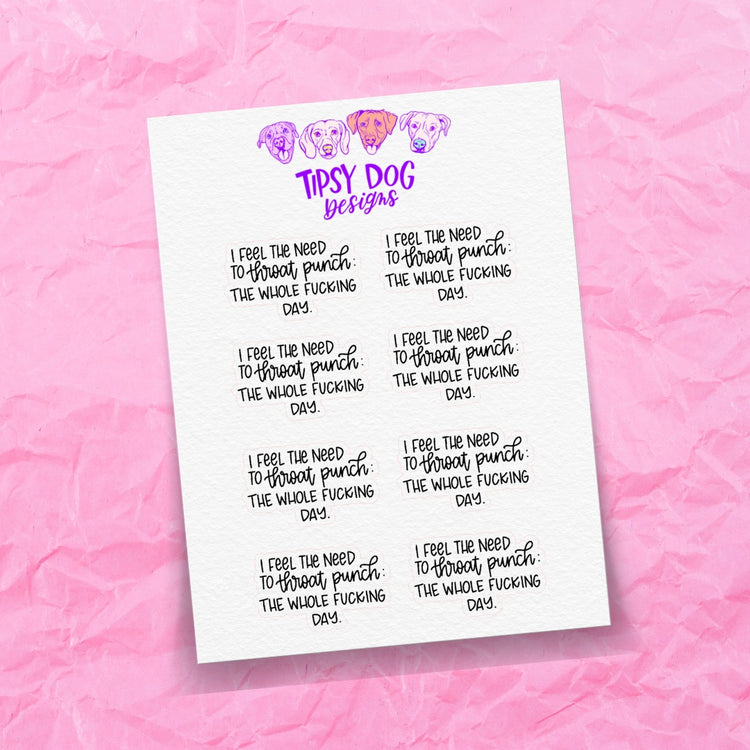 TIPSY DOG
Designs
I FEEL THE NEED
TO throat punch:
THE WHOLE FUCKING
DAY.
I FEEL THE NEED
TO throat punch:
THE WHOLE FUCKING
DAY.
I FEEL THE NEED
TO throat punch:
THE WHOLE FUCKING
DAY.
I FEEL THE NEED
TO throat punch:
THE WHOLE FUCKING
DAY.
I FEEL THE NEED
TO throat punch:
THE WHOLE FUCKING
DAY.
I FEEL THE NEED
TO throat punch:
THE WHOLE FUCKING
DAY.
I FEEL THE NEED
TO throat punch:
THE WHOLE FUCKING
DAY.
I FEEL THE NEED
TO throat punch:
THE WHOLE FUCKING
DAY.